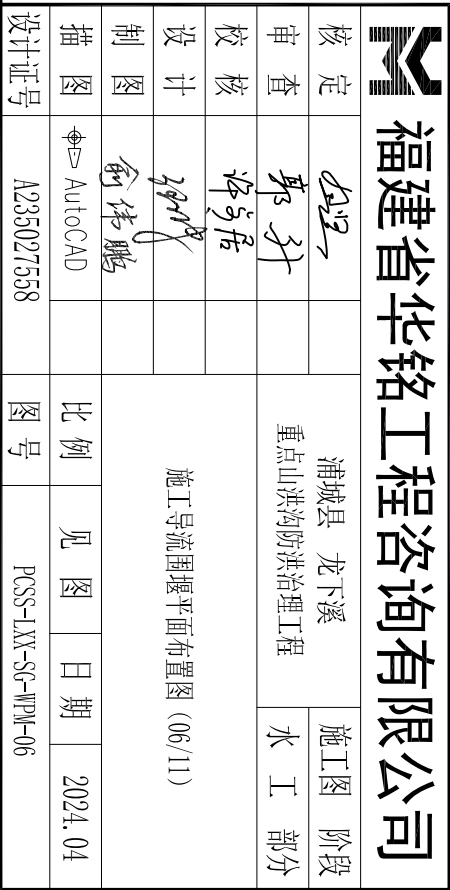 福建省华铭工程咨询有限公司
核 定
浦城县 龙下溪
重点山洪沟防洪治理工程
施工图 阶段
审 查
郭
水 工 部分
校 核
设 计
施工导流围堰平面布置图(06/11)
制 图
俞伟鹏
描 图
AutoCAD
比 例
见 图
日 期
2024.04
设计证号
A235027558
图 号
PCSS-LXX-SG-WPM-06